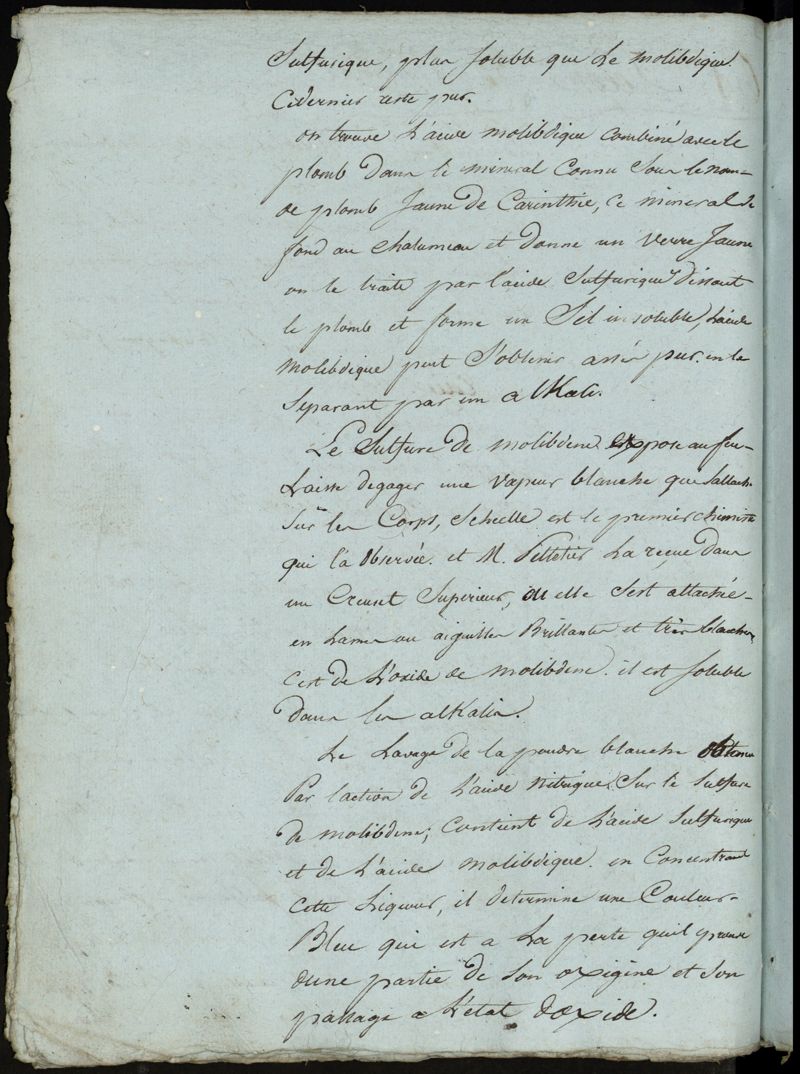 Sulfurique, plus soluble que Le molibdique.
Cedernier reste pur.
on trouve L'acide molibdique combiné avec le
plomb dans le mineral Connu Sous le nom
de plomb Jaune de Carinthie, ce mineral se
fond au Chalumeau et donne un Verre Jaune
on le traite par l'acide Sulfurique dissout
le plomb et forme un Sel insoluble, L'acide
molibdique peut S'obtenir assés pur. en le
Separant par un alKali.
Le Sulfure de molibdene exposé au feu
Laisse degager une vapeur blanche que S'attache
Sur les Corps, Scheelle est le premier chimiste
qui l'a observée. et M. Pelletier La reçue dans
un Creuset Superieur, ou elle S'est attachée
en Lames ou aiguilles Brillantes et très blanches
C'est de L'oxide de molibdene. il est soluble
dans les alKalis.
Le Lavage de la poudre blanche obtenue
Par l'action de L'acide nitrique Sur le Sulfure
de molibdene; Contient de L'acide Sulfurique
et de L'acide molibdique. en Concentrant
Cette Liqueur, il determine une Couleur
Bleu qui est a La perte qu'il
d'une partie de son oxigène et son
passage a L'état d'oxide.